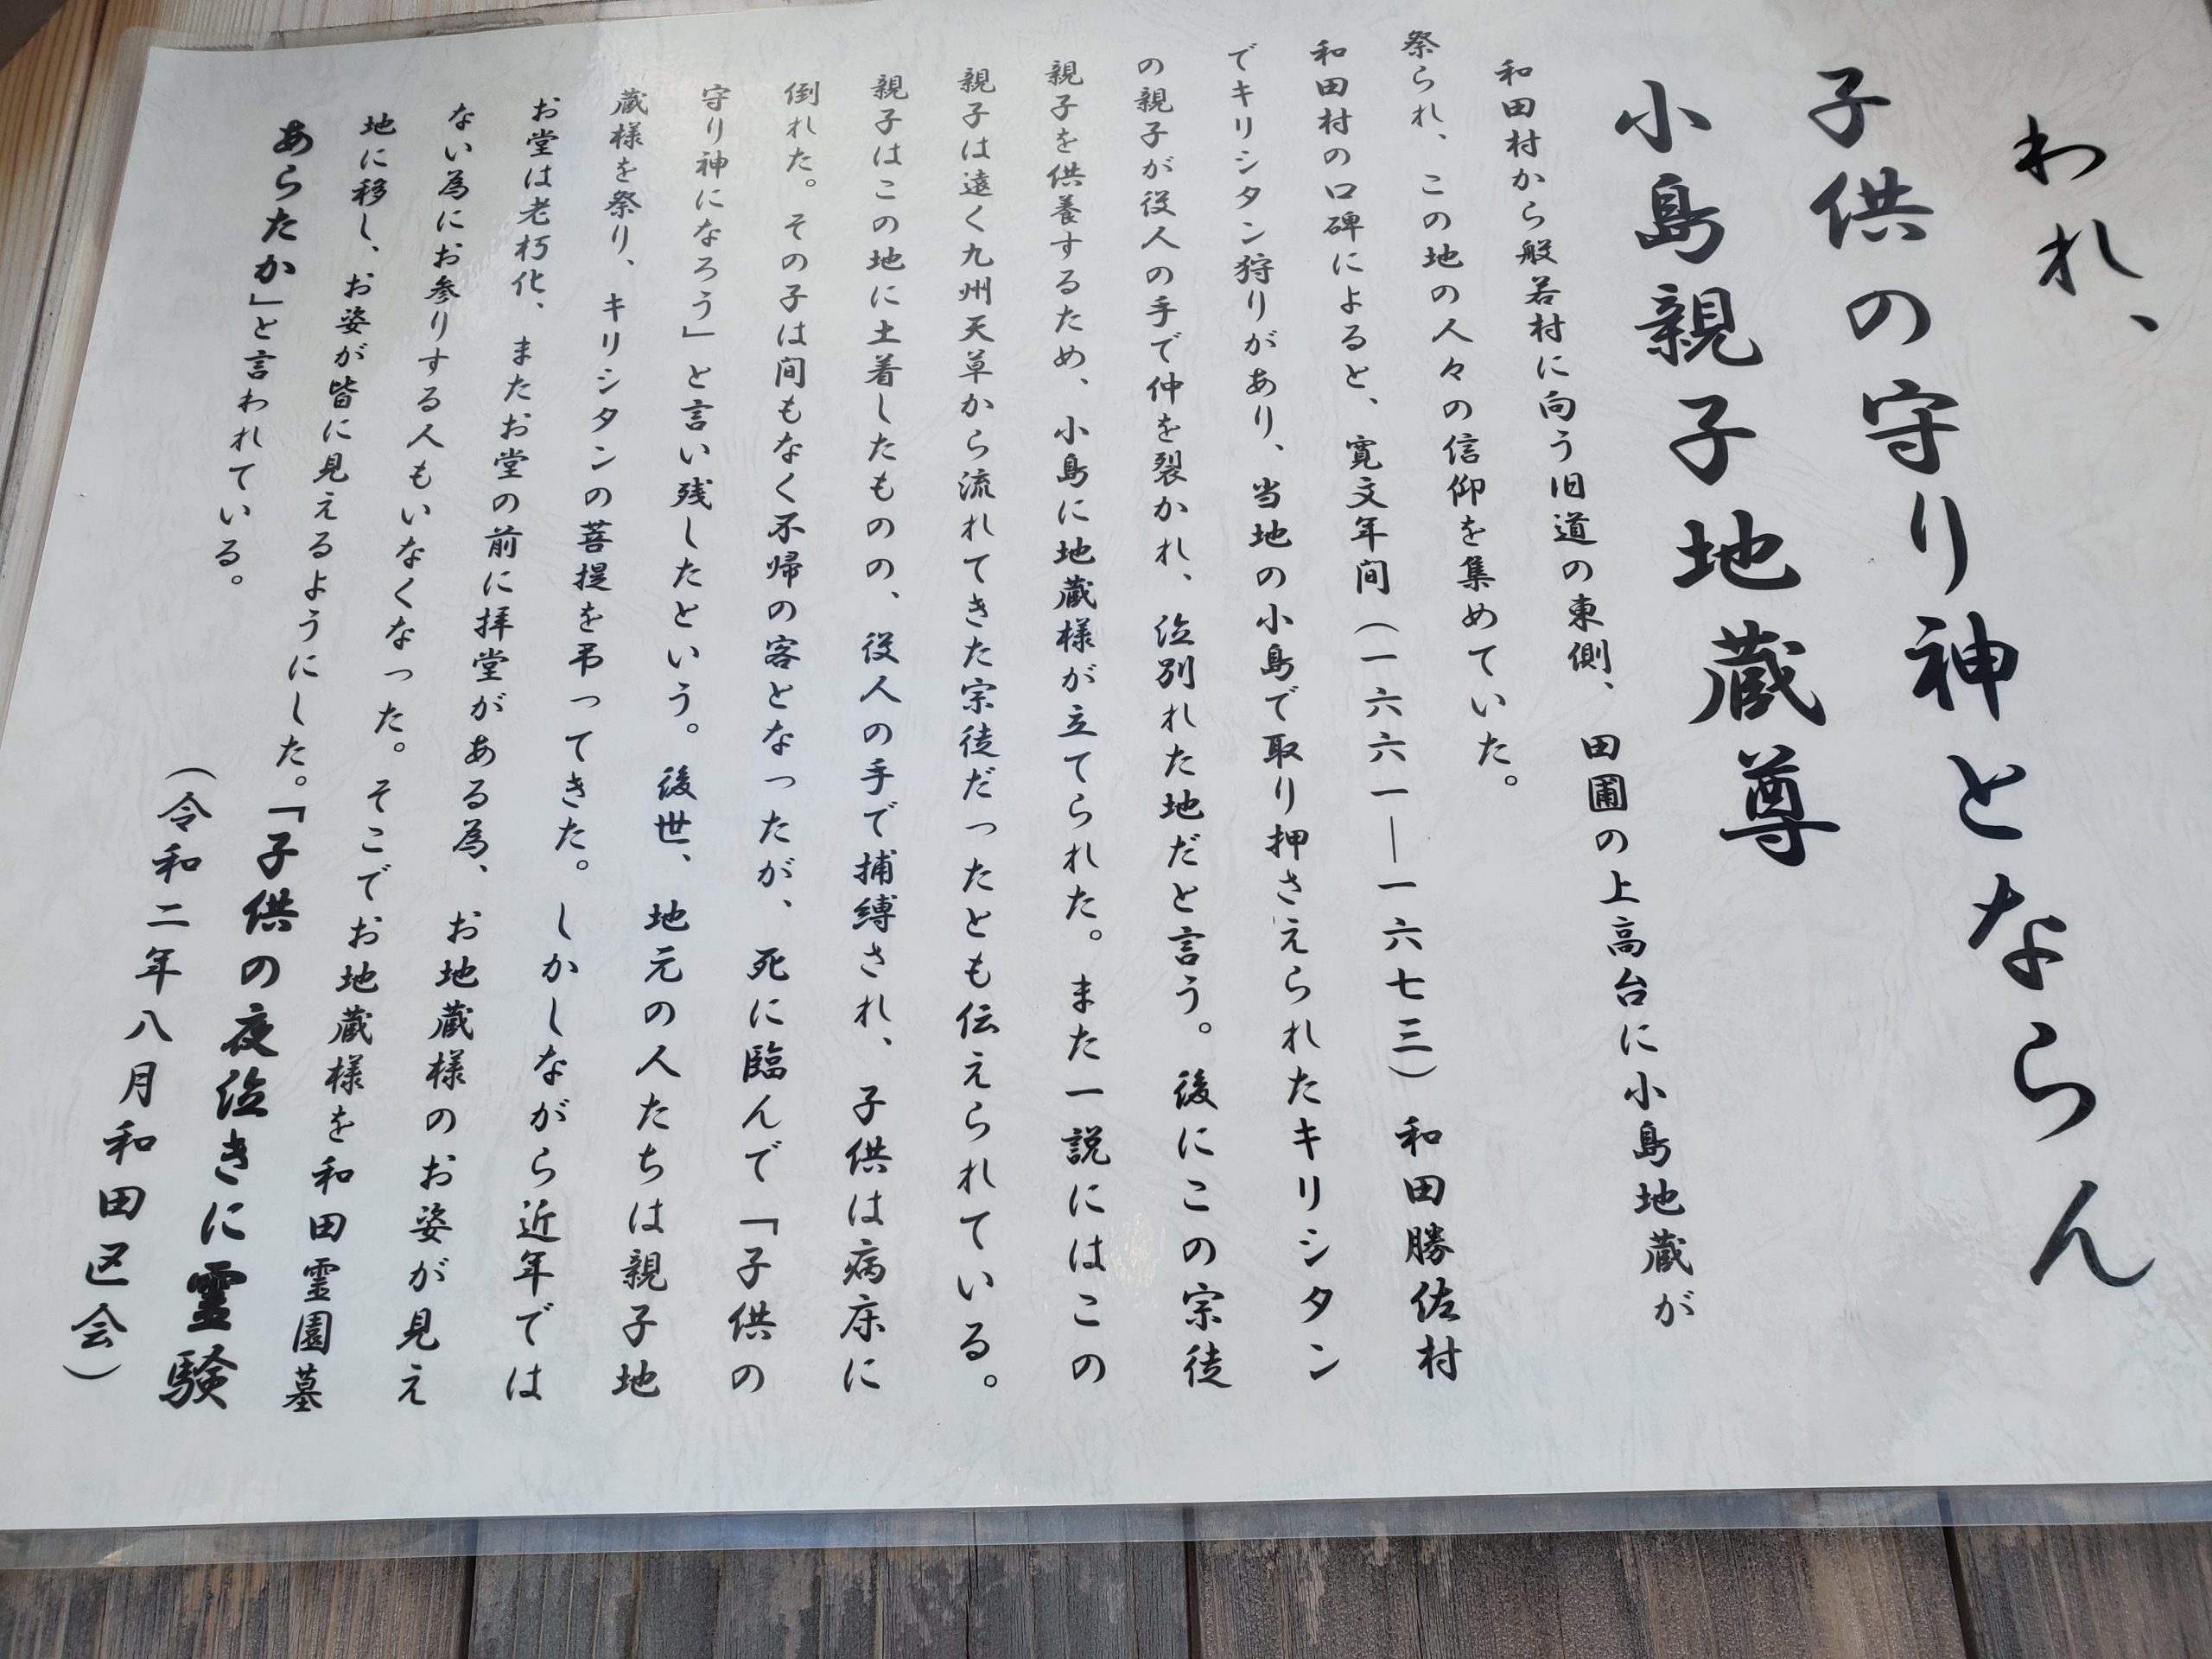 われ、
子供の守り神とならん
小島親子地蔵尊
和田村から般若村に向う旧道の東側、田圃の上高台に小島地蔵が
祭られ、この地の人々の信仰を集めていた。
和田村の口碑によると、寛文年間（一六六一―一六七三）和田勝佐村
でキリシタン狩りがあり、当地の小島で取り押さえられたキリシタン
の親子が役人の手で仲を裂かれ、泣別れた地だと言う。後にこの宗徒
親子を供養するため、小島に地蔵様が立てられた。また一説にはこの
親子は遠く九州天草から流れてきた宗徒だったとも伝えられている。
親子はこの地に土着したものの、役人の手で捕縛され、子供は病床に
倒れた。その子は間もなく不帰の客となったが、死に臨んで「子供の
守り神になろう」と言い残したという。後世、地元の人たちは親子地
蔵様を祭り、キリシタンの菩提を弔ってきた。しかしながら近年では
お堂は老朽化、またお堂の前に拝堂がある為、お地蔵様のお姿が見え
ない為にお参りする人もいなくなった。そこでお地蔵様を和田霊園墓
地に移し、お姿が皆に見えるようにした。「子供の夜泣きに霊験
あらたか」と言われている。
（令和二年八月和田区会）